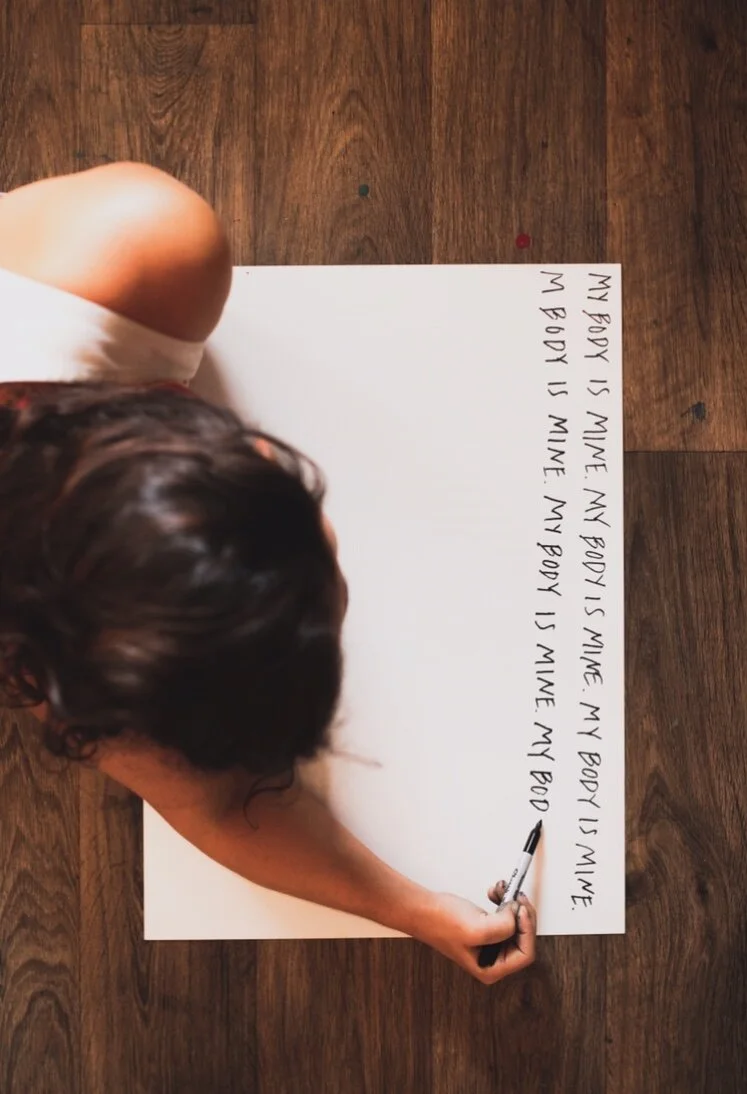 MY BODY IS MINE. MY BODY IS MINE. MY BODY IS MINE.
M BODY IS MINE. MY BODY IS MINE. MY BOD